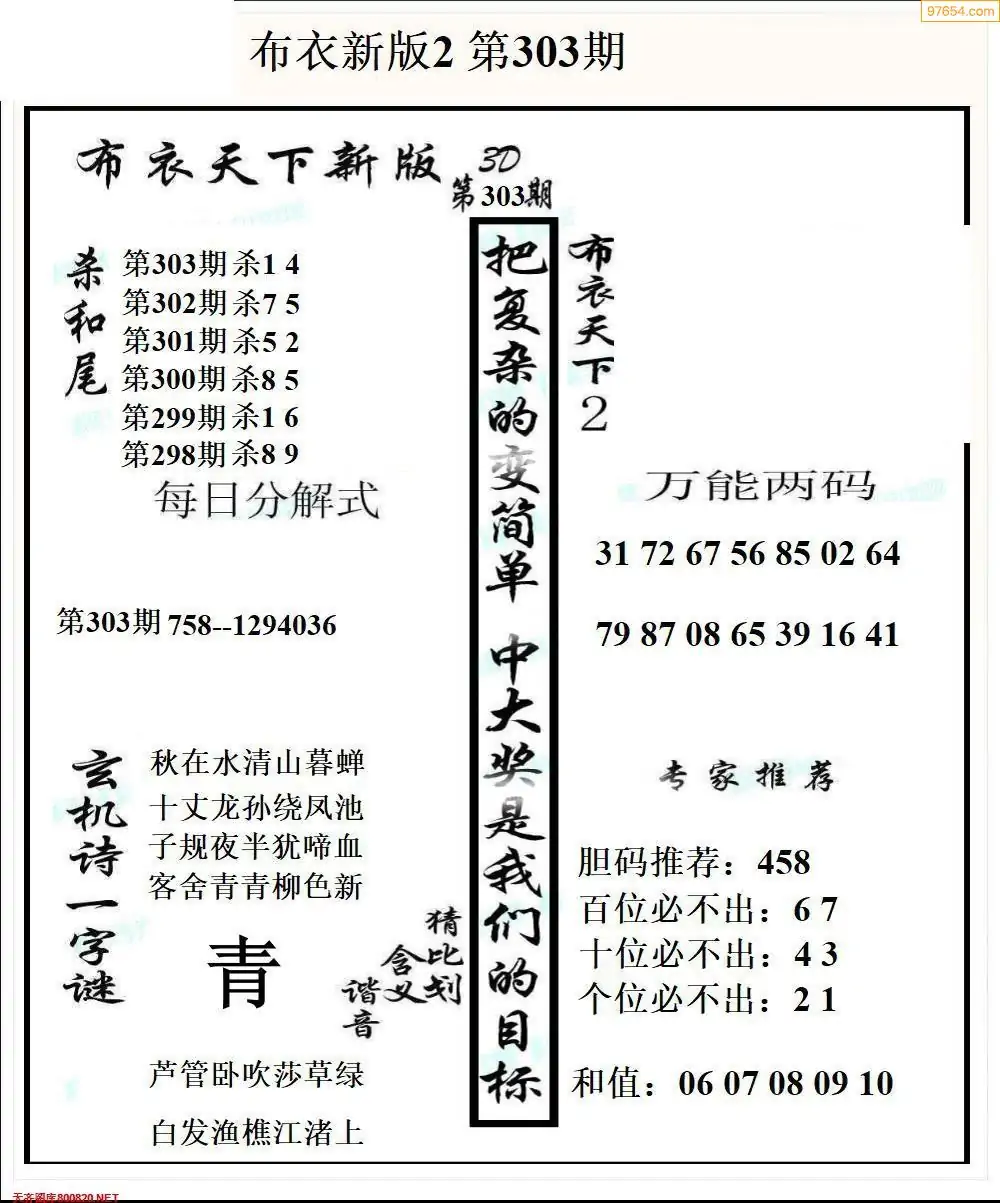 97654.com
布衣新版2 第303期
布衣天下新版 3D
第303期
杀和尾
第303期 杀1 4
第302期 杀7 5
第301期 杀5 2
第300期 杀8 5
第299期 杀1 6
第298期 杀8 9
每日分解式
第303期 758--1294036
玄机诗一字谜
秋在水清山暮蝉
十丈龙孙绕凤池
子规夜半犹啼血
客舍青青柳色新
青
猜比划
含义
谐音
芦管卧吹莎草绿
白发渔樵江渚上
把复杂的变简单 中大奖是我们的目标
布衣天下2
万能两码
31 72 67 56 85 02 64
79 87 08 65 39 16 41
专家推荐
胆码推荐：458
百位必不出：6 7
十位必不出：4 3
个位必不出：2 1
和值：06 07 08 09 10
天齐图库800820.NET